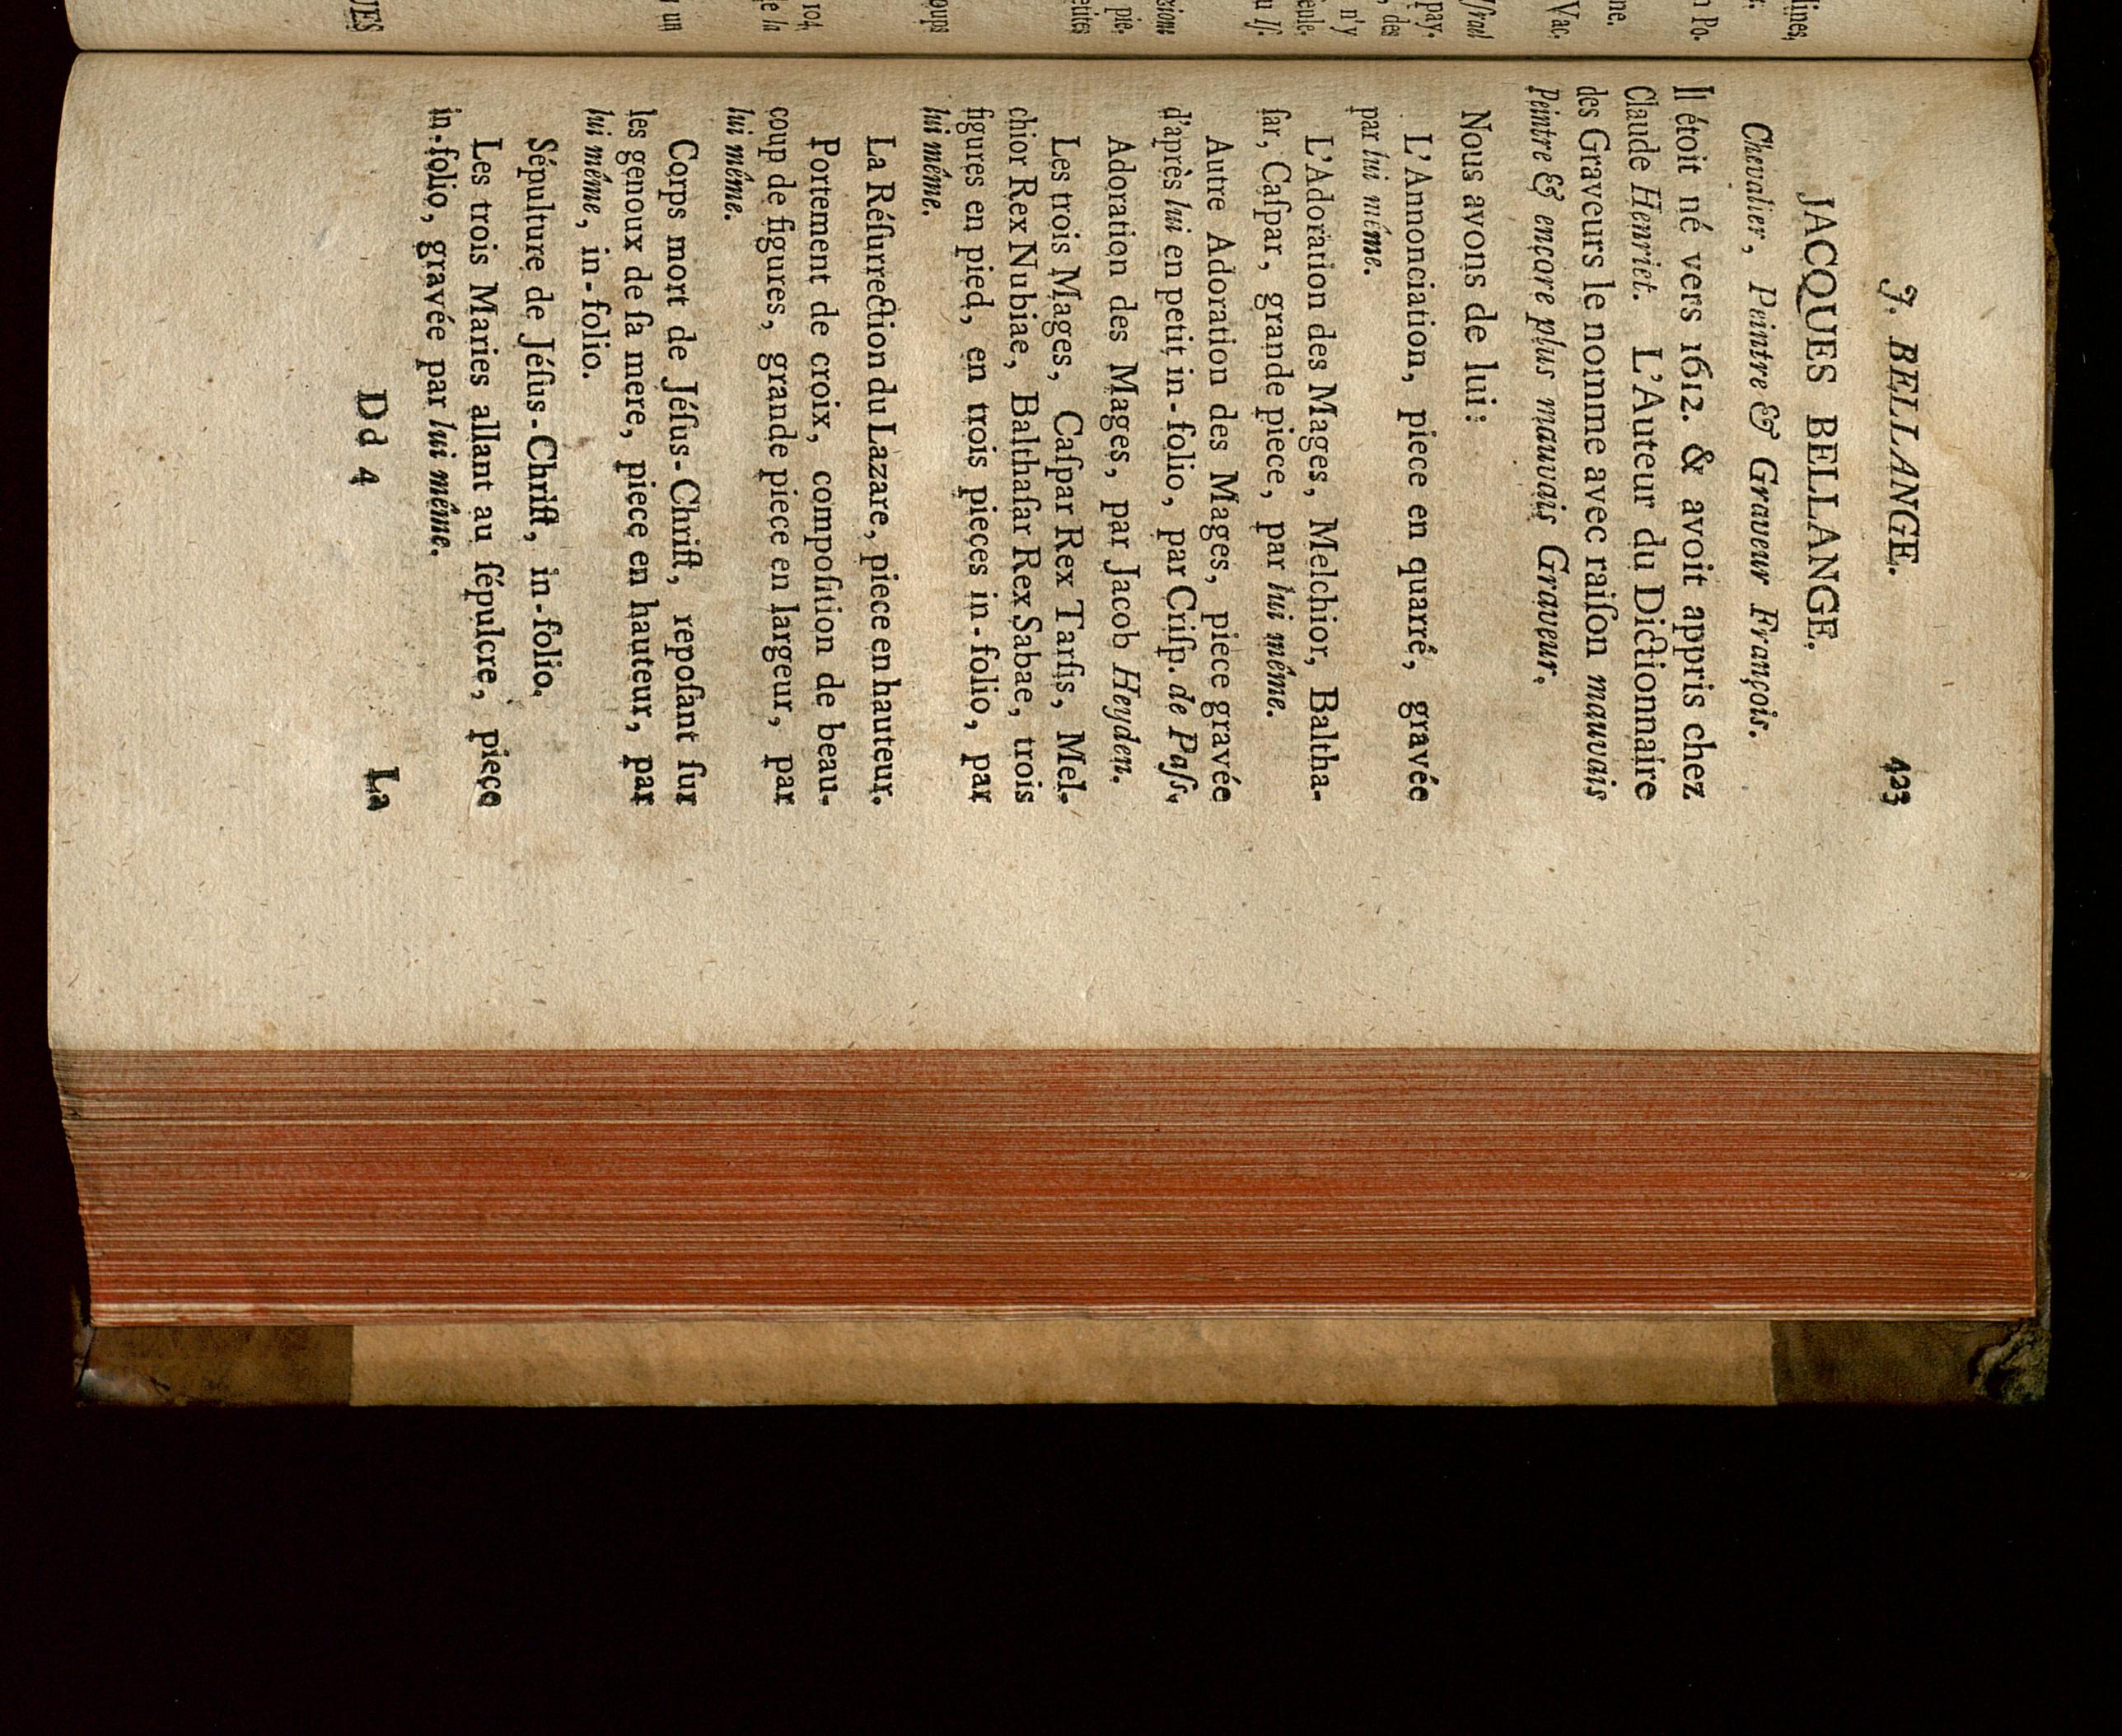 J. BELLANGE. 423
JACQUES BELLANGE.
Chevalier, Peintre & Graveur François.
Il étoit né vers 1612. & avoit appris chez
Claude Henriet. L'Auteur du Dictionnaire
des Graveurs le nomme avec raiſon mauvais
Peintre & encore plus mauvais Graveur.
Nous avons de lui:
L'Annonciation, piece en quarré, gravée
par lui même.
L'Adoration des Mages, Melchior, Baltha-
ſar, Caſpar, grande piece, par lui même.
Autre Adoration des Mages, piece gravée
d'après lui en petit in-folio, par Criſp. de Paſs.
Adoration des Mages, par Jacob Heyden.
Les trois Mages, Caſpar Rex Tarſis, Mel-
chior Rex Nubiae, Balthaſar Rex Sabae, trois
figures en pied, en trois pieces in-folio, par
lui même.
La Réſurrection du Lazare, piece en hauteur.
Portement de croix, compoſition de beau-
coup de figures, grande piece en largeur, par
lui même.
Corps mort de Jéſus-Chriſt, repoſant ſur
les genoux de ſa mere, piece en hauteur, par
lui même, in-folio.
Sépulture de Jéſus-Chriſt, in-folio.
Les trois Maries allant au ſépulcre, piece
in-folio, gravée par lui même.
Dd 4 La